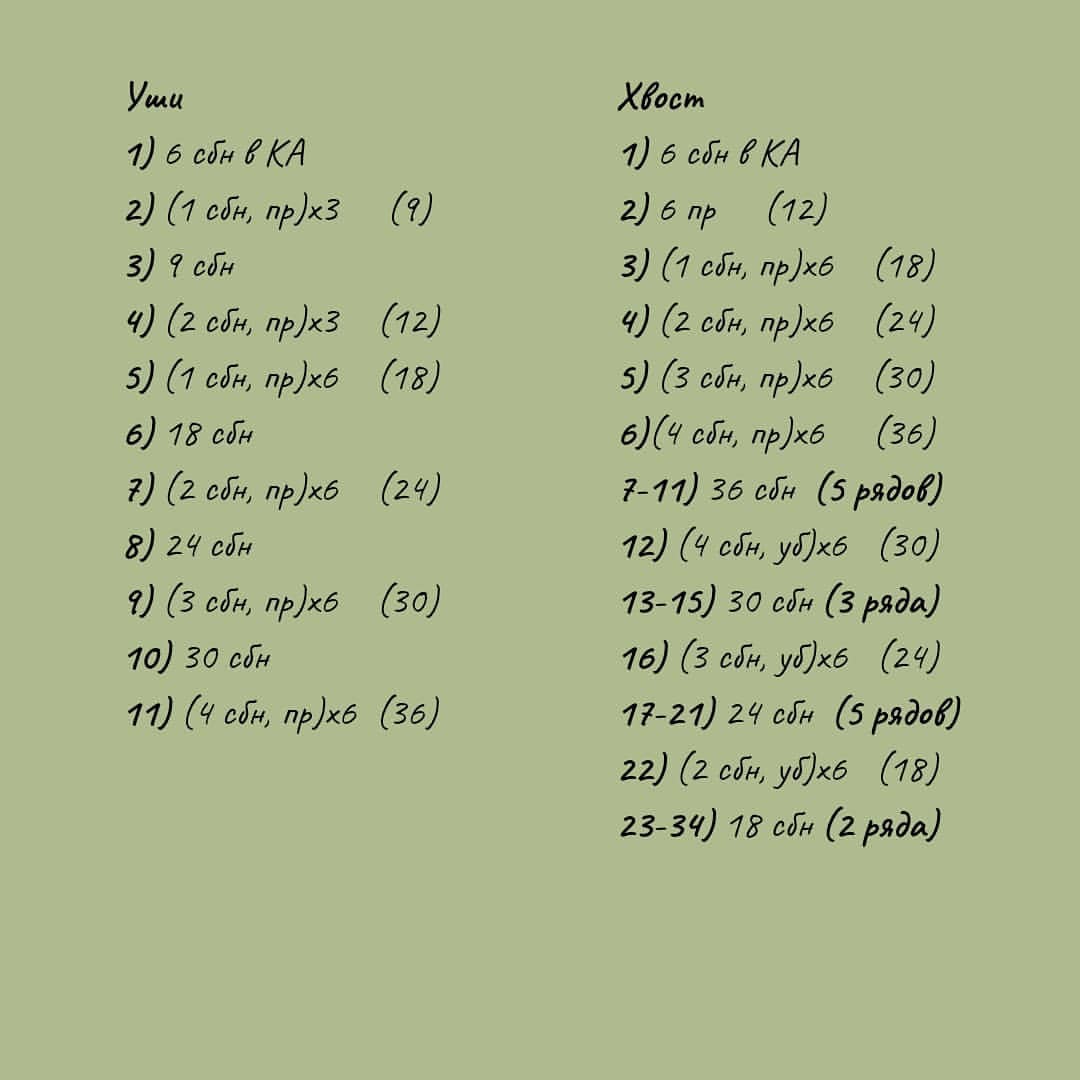 Уши
1) 6 сбн в КА
2) (1 сбн, пр)х3 (9)
3) 9 сбн
4) (2 сбн, пр)х3 (12)
5) (1 сбн, пр)х6 (18)
6) 18 сбн
7) (2 сбн, пр)х6 (24)
8) 24 сбн
9) (3 сбн, пр)х6 (30)
10) 30 сбн
11) (4 сбн, пр)х6 (36)
Хвост
1) 6 сбн в КА
2) 6 пр (12)
3) (1 сбн, пр)х6 (18)
4) (2 сбн, пр)х6 (24)
5) (3 сбн, пр)х6 (30)
6)(4 сбн, пр)х6 (36)
7-11) 36 сбн (5 рядов)
12) (4 сбн, уб)х6 (30)
13-15) 30 сбн (3 ряда)
16) (3 сбн, уб)х6 (24)
17-21) 24 сбн (5 рядов)
22) (2 сбн, уб)х6 (18)
23-34) 18 сбн (2 ряда)